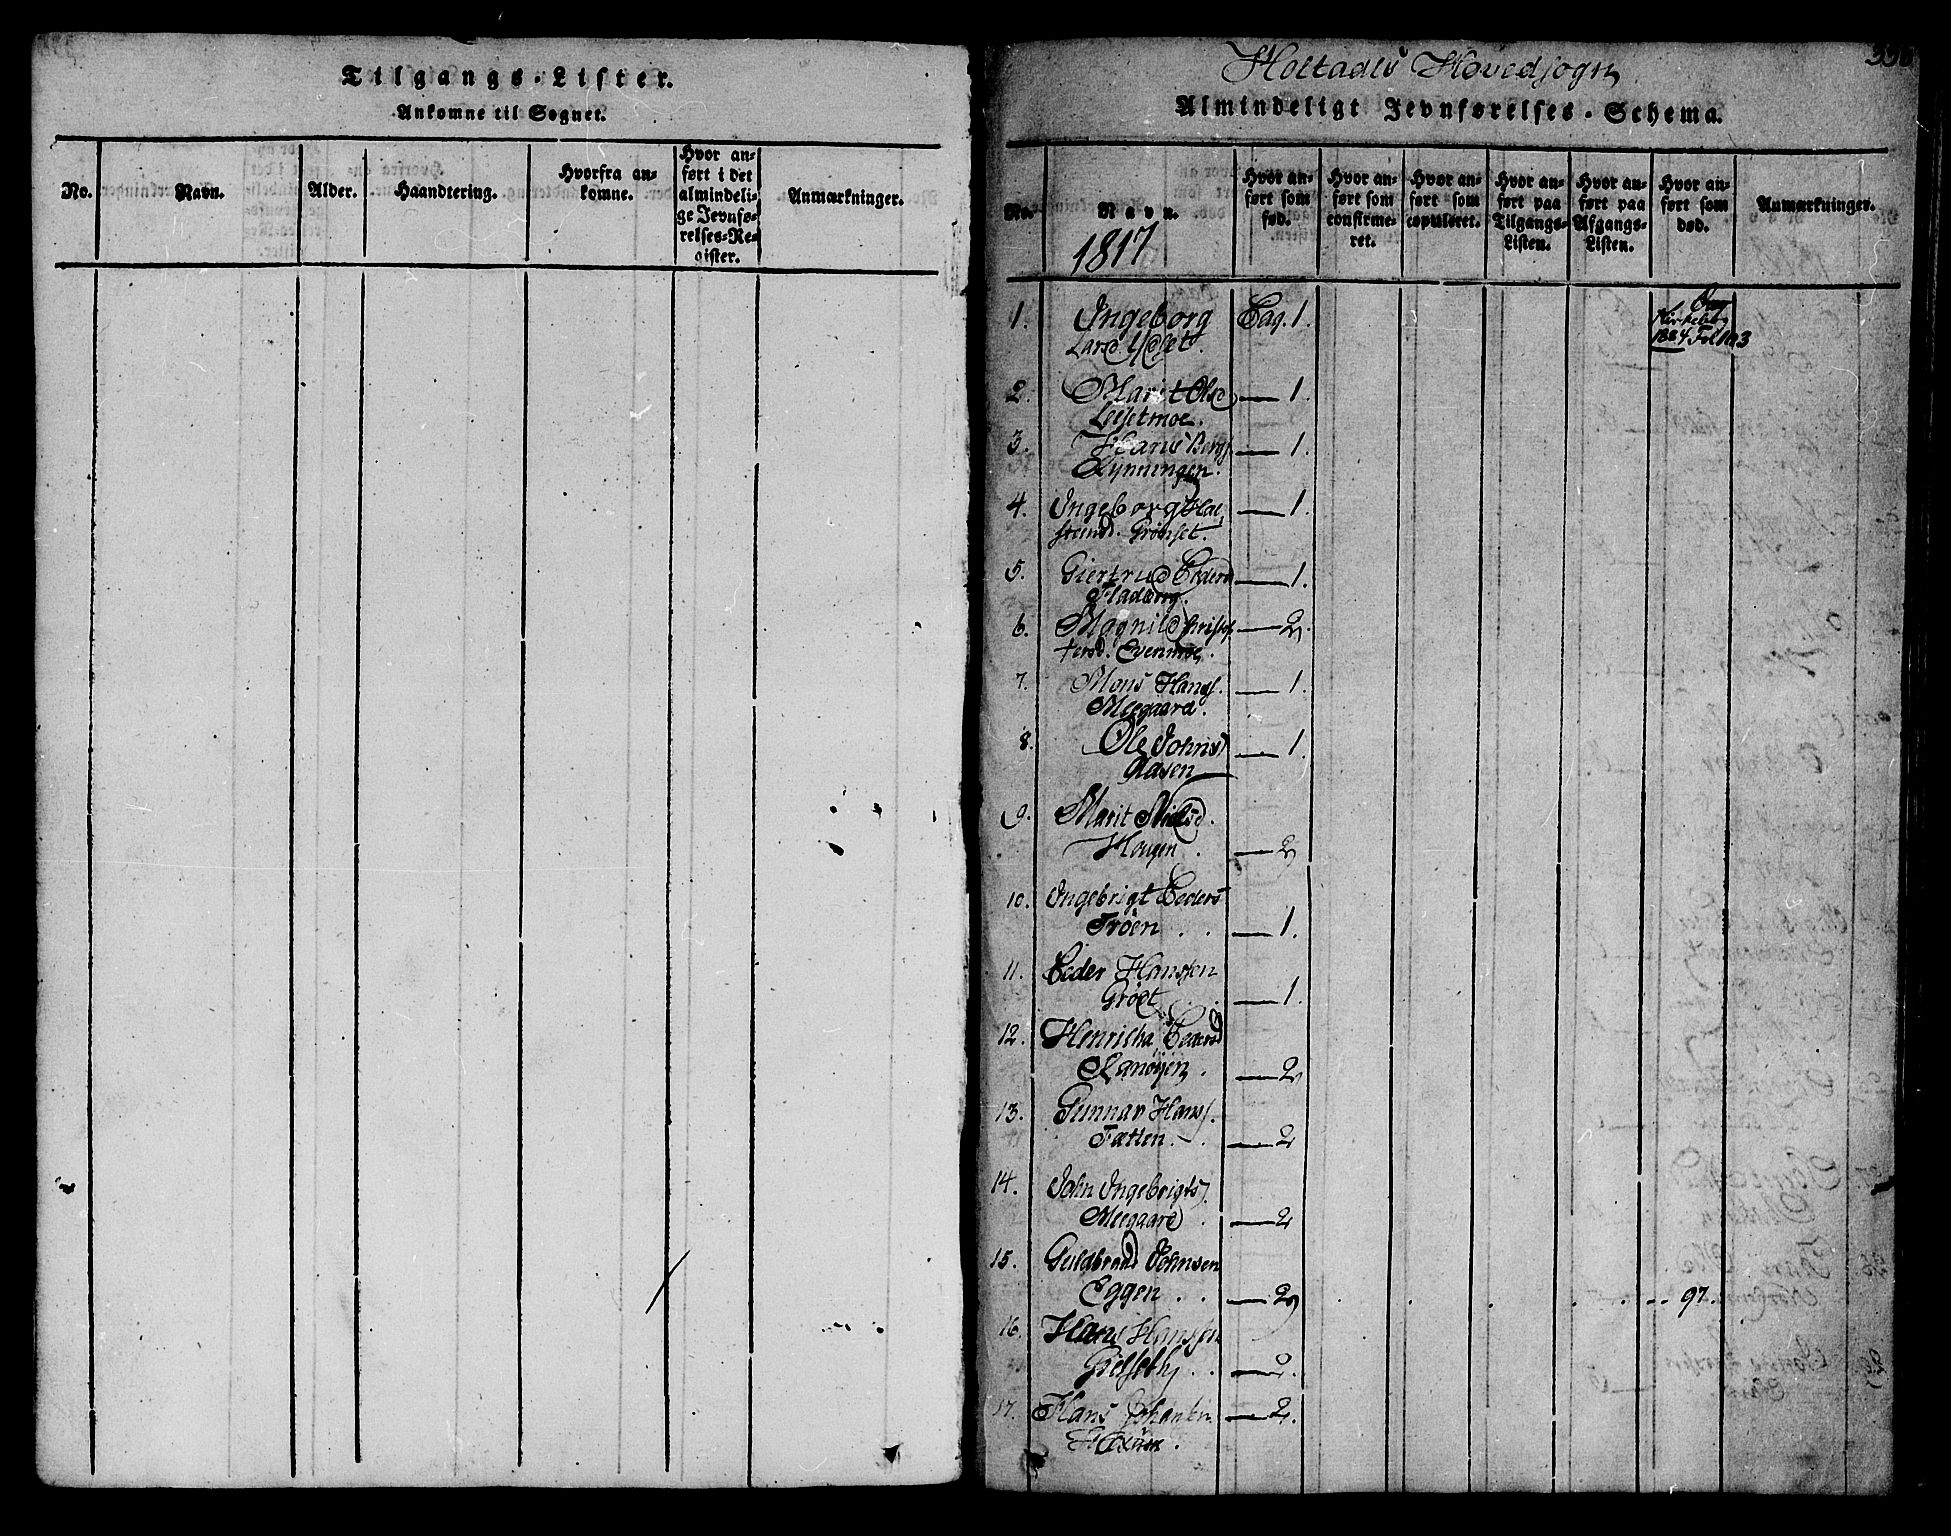 Tilgangs-Lister.
Ankomne til Sognet.
No.
Navn.
Alder.
Haandtering.
Hvorfra an-
komne.
Hvor an-
ført i det
almindeli-
ge Jevnfø-
relses-Re-
gister.
Anmærkninger.
Holtaales Hovedsogn
Almindeligt Jevnførelses-Schema.
No.
Navn.
1817
Hvor an-
ført som
fød.
Hvor an-
ført som
confirme-
ret.
Hvor an-
ført som
copuleret.
Hvor an-
ført paa
Tilgangs-
Listen.
Hvor an-
ført paa
Afgangs-
Listen.
Hvor an-
ført som
død.
Anmærkninger.
1. Ingeborg Pag. 1.
Larsd.
1884 Fol 103
2. Marit Olsd — 1.
3. Hans — 1.
4. Ingeborg Hal — 1.
steind. Grønset.
5. Giertrud Peders — 1.
Fladæng.
6. Magnild Christop — 2
fersd. Evenmoe.
7. Mons Hans — 1.
Meegaard.
8. Ole Johns — 1.
Aasen
9. Marit Nielsd.
Haugen — 2
10. Ingebrigt Peders
Trøen — 1.
11. Peder Hanssen
Grøet — 1.
12. Pedersd
Ranøyen — 2
13. Gunnar Hans
Tætlen — 2
14. John Ingebrigts
Meegaard — 2
15. Guldbrand Johnsen
Eggen — 2 97.
16. Hans Hanssen
— 2.
17. Hans — 2.